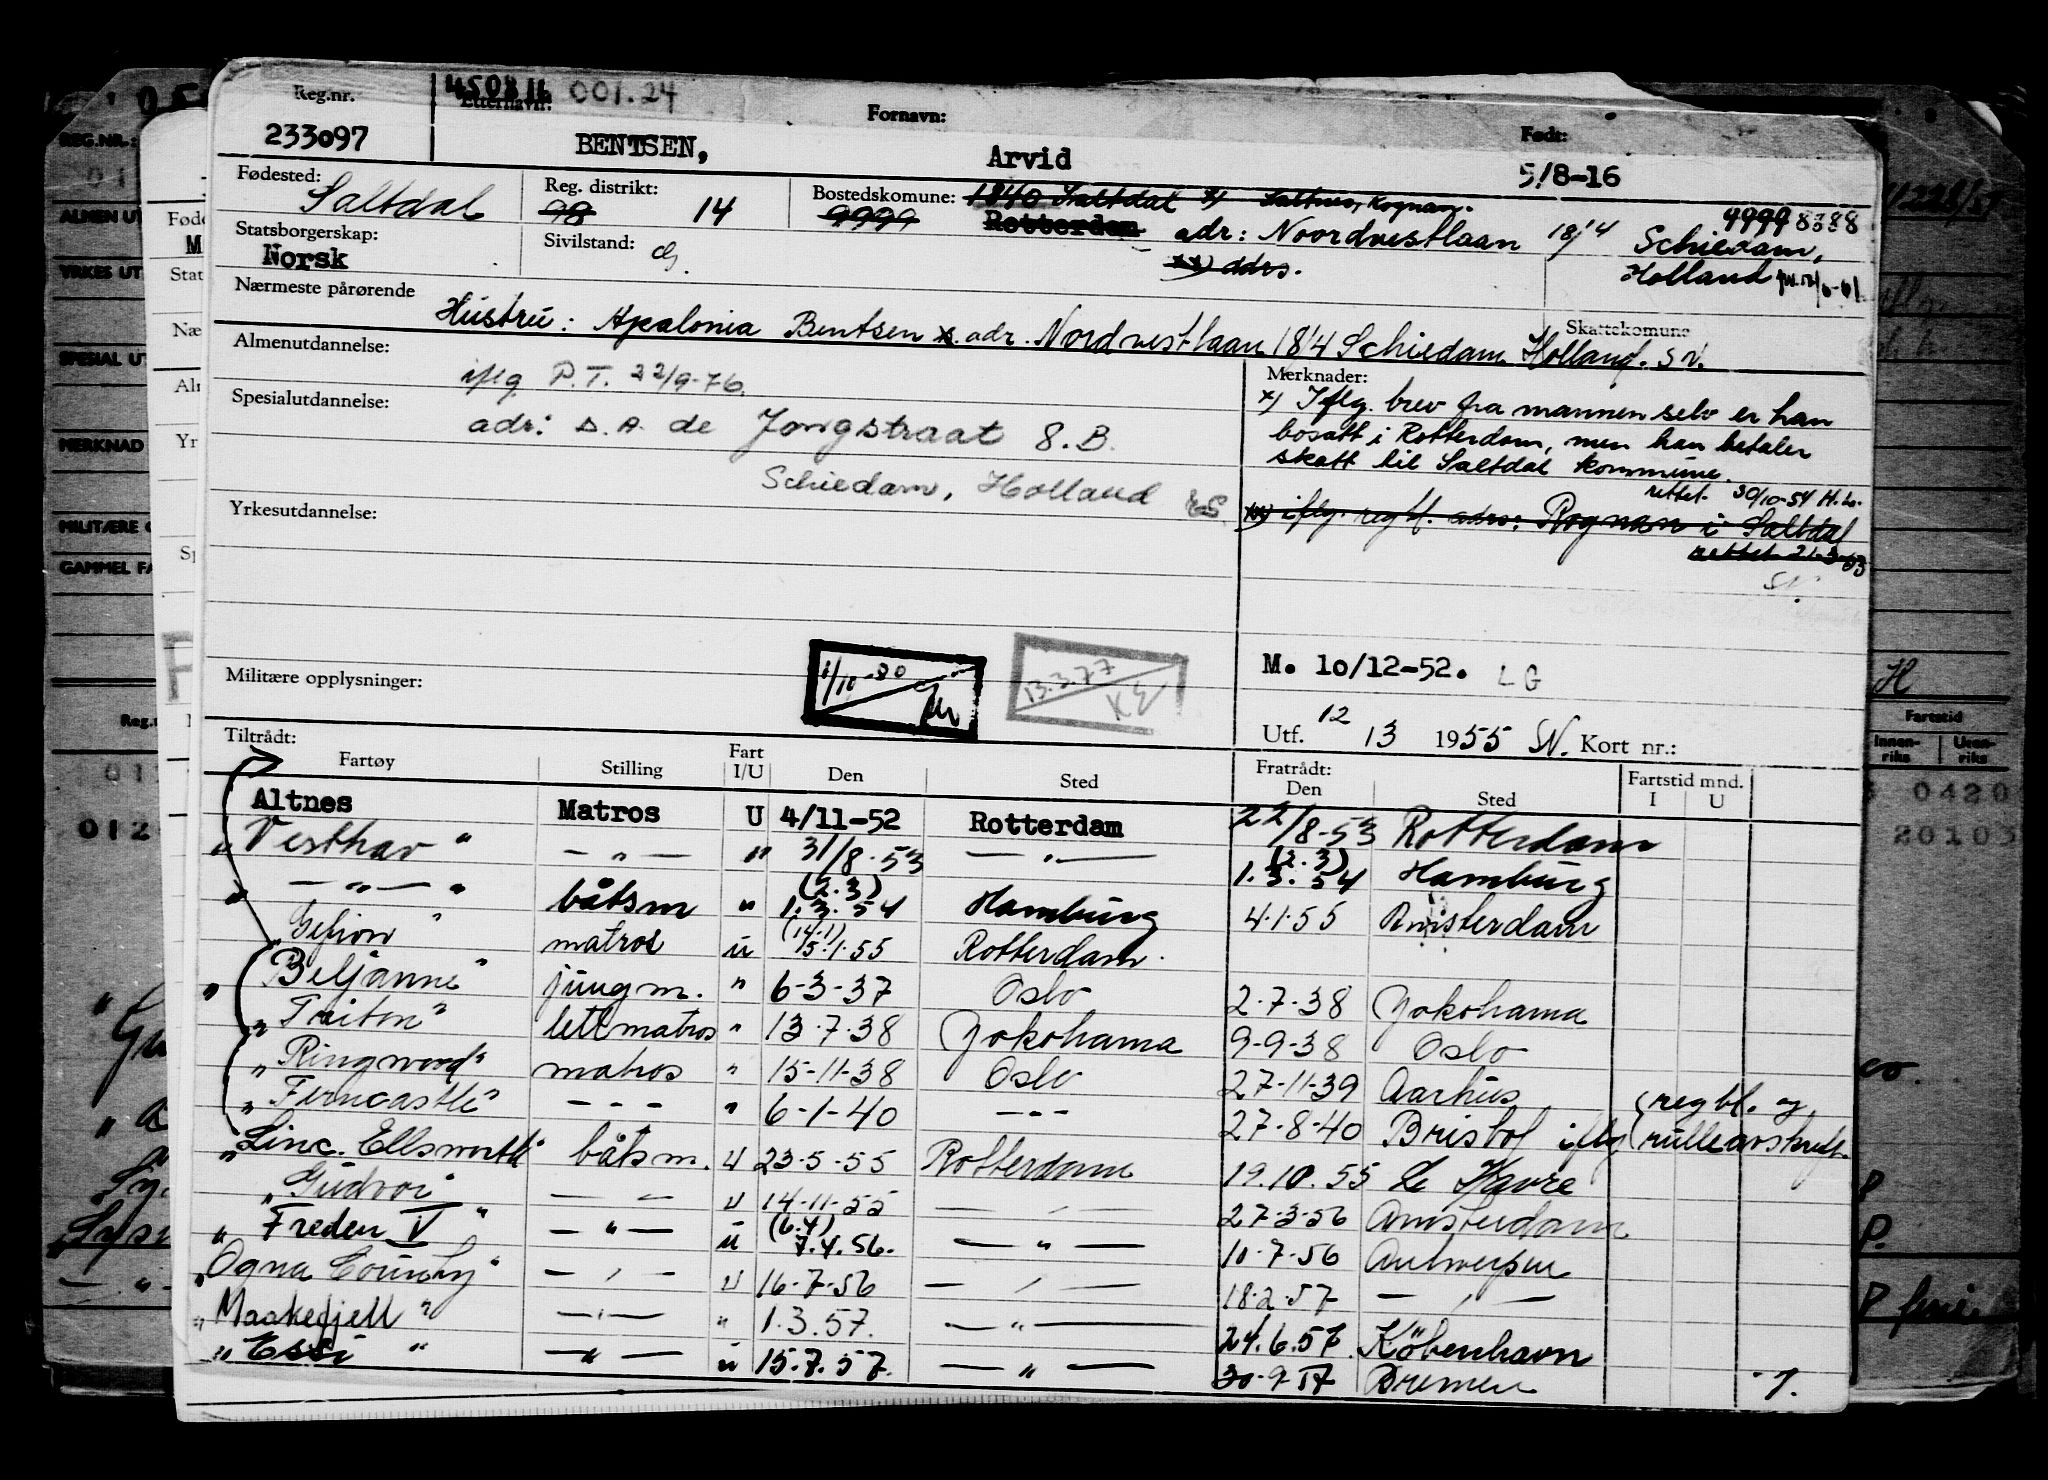 Reg.nr. 450816 001.24
Etternavn: Fornavn: Født:
233097 BENTSEN, Arvid 5/8-16
Fødested: Saltdal Reg. distrikt: 98 14 Bostedskomune: 1840 Saltdal x) Saltnes, Rognan.
9999 Rotterdam adr: Noordvestlaan 18'4 Schiedam, 9999 8388
xx) adrs. Holland
Statsborgerskap: Norsk Sivilstand: G.
Nærmeste pårørende
Hustru: Apalonia Bentsen x. adr. Nordvestlaan 18'4 Schiedam Holland. SN.
Skattekomune
Almenutdannelse:
iflg P.T. 22/9-76.
Spesialutdannelse:
adr: D.A. de Jongstraat 8.B.
Schiedam, Holland
Merknader:
x) Iflg. brev fra mannen selv er han
bosatt i Rotterdam, men han betaler
skatt til Saltdal kommune.
rettet 30/10-54 H.L.
xx) iflg. regbl. adrs: Rognan i Saltdal
rettet 21-3-63
SN.
Yrkesutdannelse:
Militære opplysninger:
1/10-80
13.3.77 KE
M. 10/12-52. LG
Utf. 12 13 1955 SN. Kort nr.:
Tiltrådt: Fratrådt: Fartstid mnd.
Fartøy Stilling Fart I/U Den Sted Den Sted I U
Altnes Matros U 4/11-52 Rotterdam 22/8-53 Rotterdam
"Vesthav" — " — " 31/8-53 — " — (2.3) 1.3.54 Hamburg
" — " — " båtsm " (2.3) 1.3.54 Hamburg 4.1.55 Amsterdam
"Gefion" matros u (14.1) 15.1.55 Rotterdam.
"Beljanne" jungm. " 6-3-37 Oslo 2.7.38 Yokohama
"Triton" lettmatros " 13.7.38 Yokohama 9-9-38 Oslo
"Ringwood" matros " 15-11-38 Oslo 27-11-39 Aarhus
"Ferncastle" - - - " 6-1-40 - - - 27-8-40 Bristol iflg (regbl. og rulleavskrift.
"Linc. Ellsworth" båtsm. u 23-5-55 Rotterdam 19.10.55 Le Havre
"Gudvor" — " — u 14-11-55 — " — 27-3-56 Amsterdam
"Freden V" — " — u (6.4) 7.4.56. — " — 10-7-56 Antwerpen
"Ogna County" — " — u 16-7-56 — " — 18.2.57 — " —
"Maakefjell" — " — " 1.3.57. — " — 24.6.57. København
"Essi" — " — u 15.7.57. — " — 30-9-57 Bremen
REG.NR.:
ALMEN UT
YRKES UT
SPESIAL UT
MERKNAD
MILITÆRE O
GAMMEL FA
Fartstid
Innen-riks Uten-riks
0420
20103